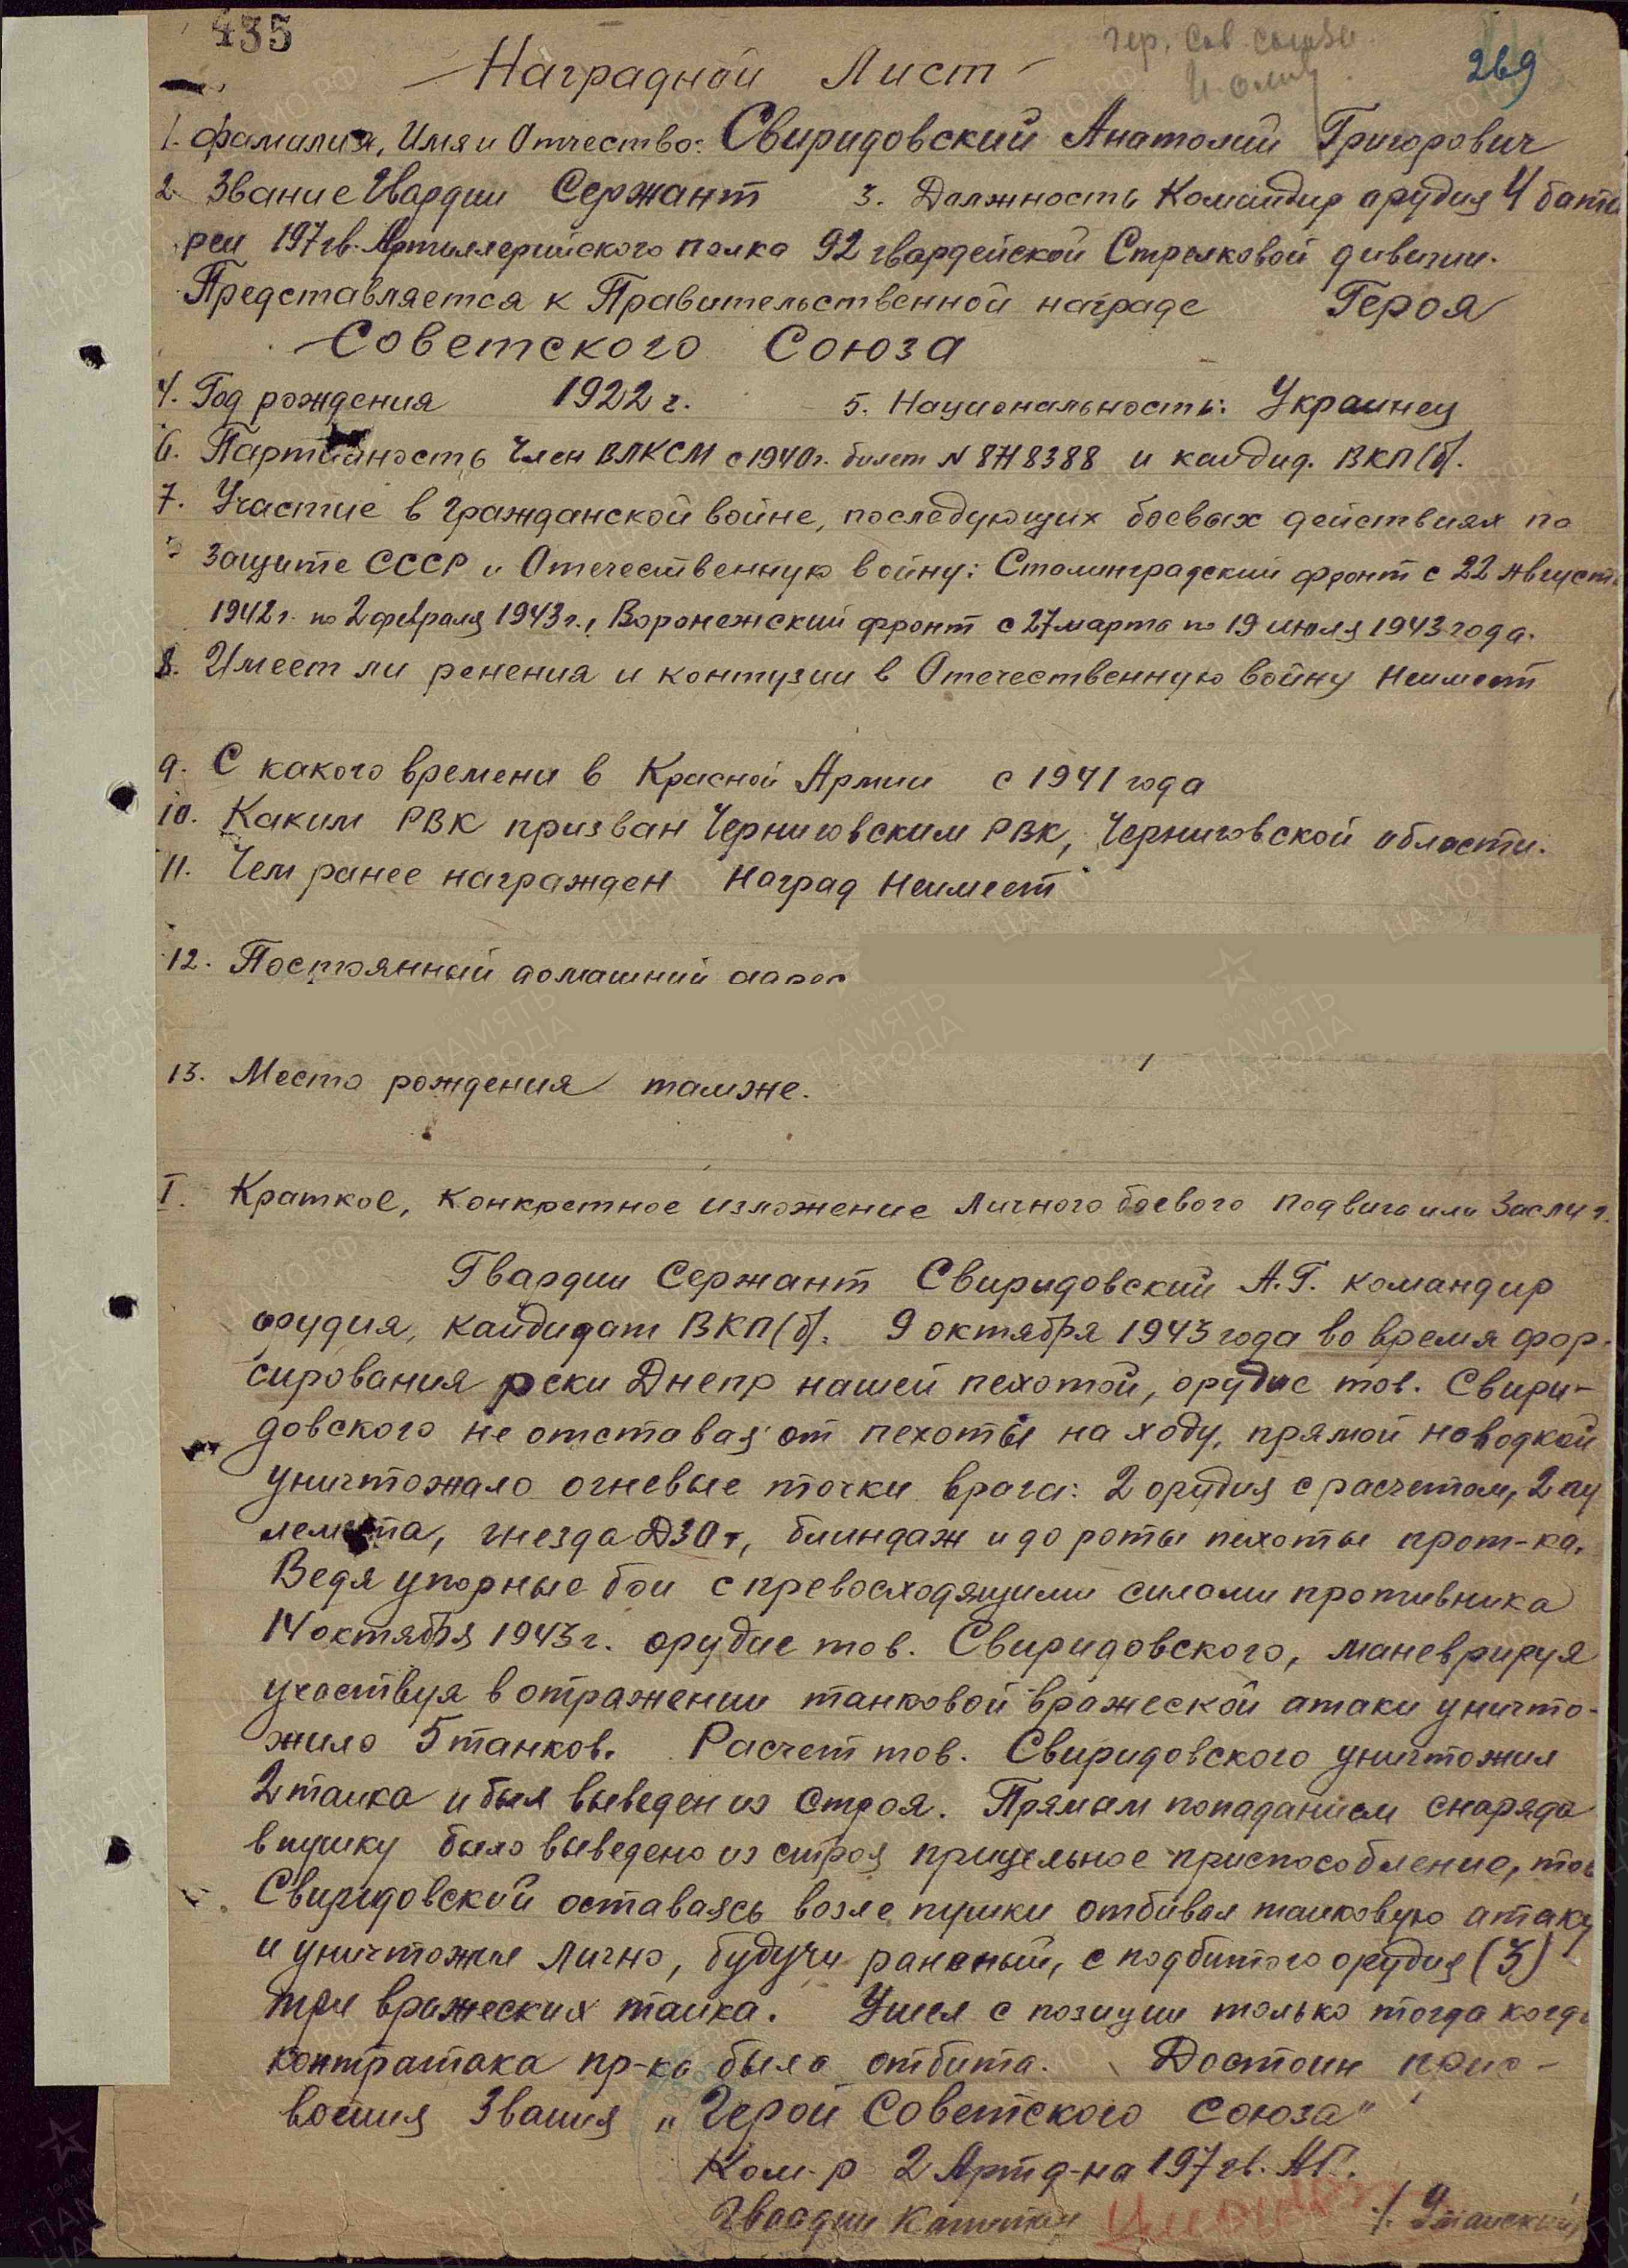 435
гер. Сов. Союза
269
Наградной Лист
1. Фамилия, Имя и Отчество: Свиридовский Анатолий Григорович
2. Звание Гвардии Сержант 3. Должность Командир орудия 4 бата
реи 197 гв. Артиллерийского полка 92 гвардейской Стрелковой дивизии.
Представляется к Правительственной награде Героя
Советского Союза
4. Год рождения 1922 г. 5. Национальность: Украинец
6. Партийность Член ВЛКСМ с 1940г. билет N 8Н8388 и кандид. ВКП(б).
7. Участие в гражданской войне, последующих боевых действиях по
защите СССР и Отечественную войну: Сталинградский фронт с 22 Августа
1942г. по 2 февраля 1943г., Воронежский фронт с 27 марта по 19 июля 1943 года.
8. Имеет ли ренения и контузии в Отечественную войну Неимеет
9. С какого времени в Красной Армии с 1941 года
10. Каким РВК призван Черниговским РВК, Черниговской области.
11. Чем ранее награжден Наград Неимеет
12. Постоянный домашний адрес
13. Место рождения тамже.
I. Краткое, конкретное изложение личного боевого подвига или Заслуг.
Гвардии Сержант Свиридовский А.Г. командир
орудия, кандидат ВКП(б). 9 октября 1943 года во время фор-
сирования реки Днепр нашей пехотой, орудие тов. Свири-
довского не отставая от пехоты на ходу, прямой наводкой
уничтожало огневые точки врага: 2 орудия с расчетом, 2 пу
лемета, гнезда ДЗОт, блиндаж и до роты пехоты прот-ка.
Ведя упорные бои с превосходящими силами противника
14 октября 1943г. орудие тов. Свиридовского, маневрируя
участвуя в отражении танковой вражеской атаки уничто-
жило 5 танков. Расчет тов. Свиридовского уничтожил
2 танка и был выведен из строя. Прямым попаданием снаряда
в пушку было выведено из строя прицельное приспособление, тов
Свиридовский оставаясь возле пушки отбивал танковую атаку
и уничтожил лично, будучи раненый, с подбитого орудия (3)
три вражеских танка. Ушел с позиции только тогда когда
контратака пр-ка была отбита. Достоин прис-
воения Звания „Герой Советского Союза"
Ком-р 2 Артд-на 197 гв. АП.
Гвардии Капитан